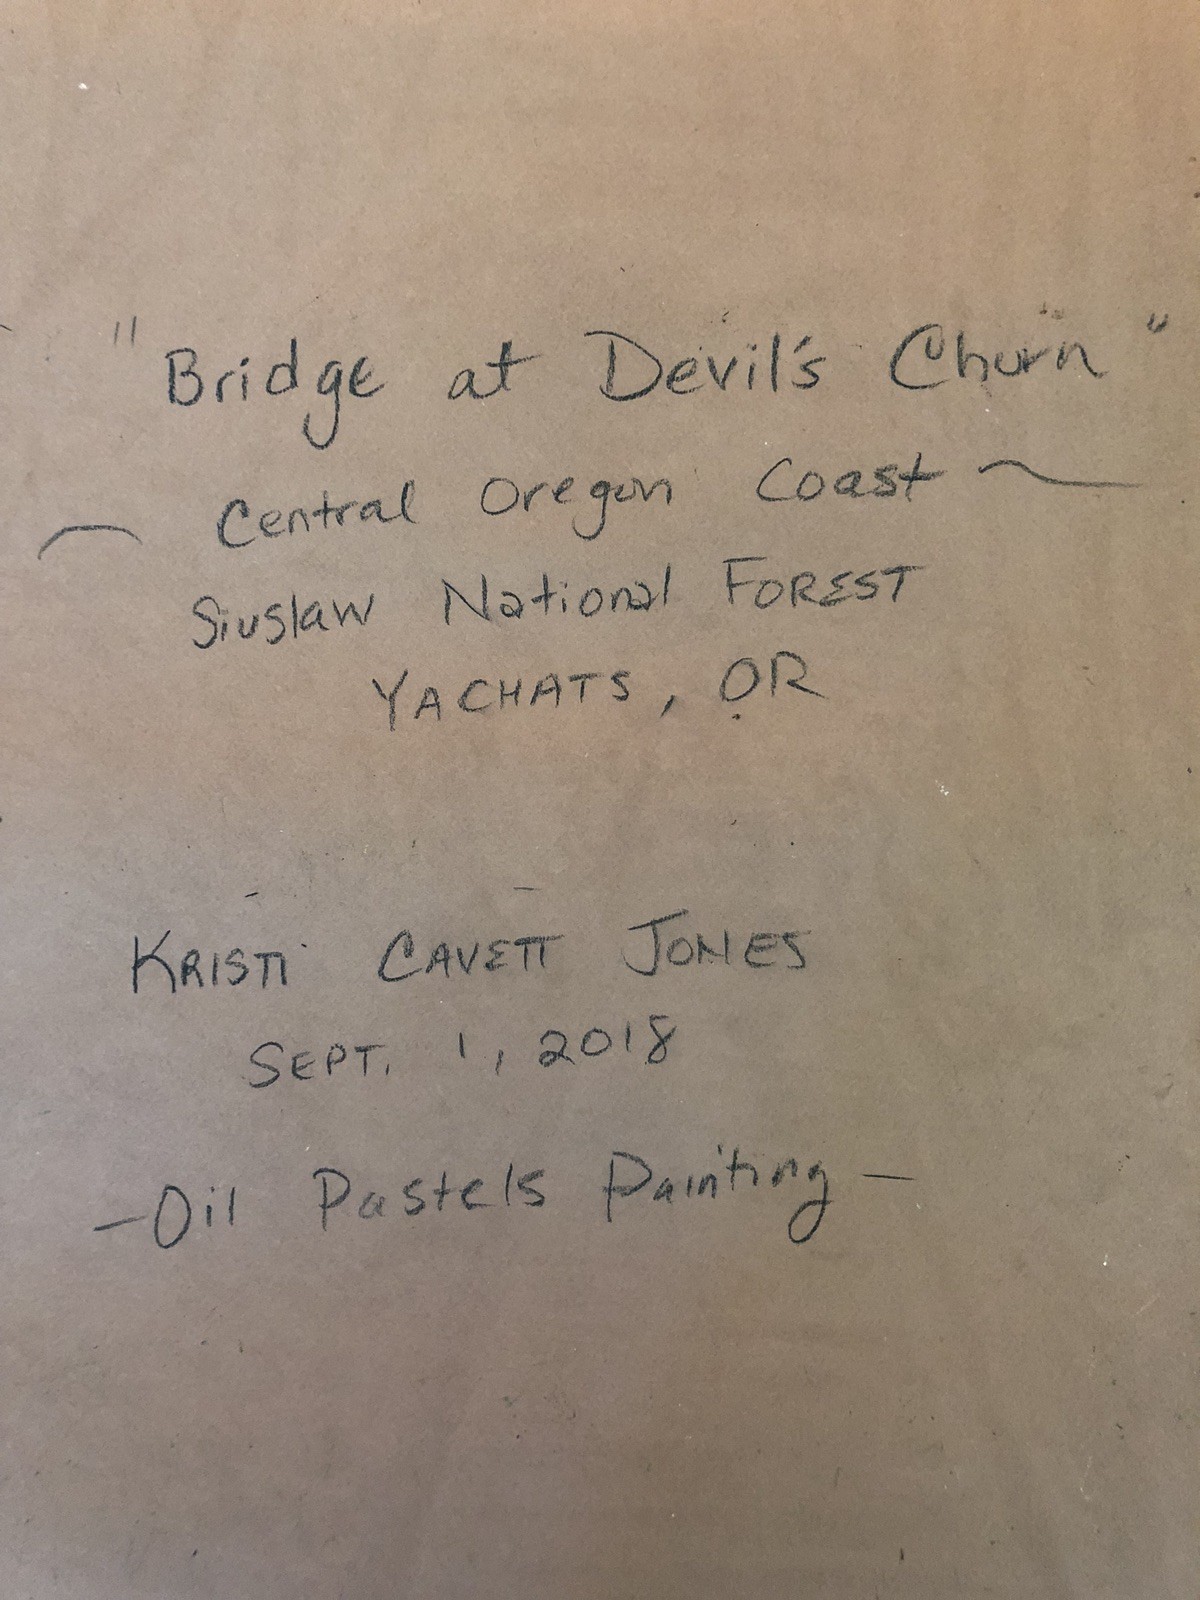 "Bridge at Devil's Churn"
~ Central Oregon Coast ~
Siuslaw National FOREST
YACHATS, OR
KRISTI CAVETT JONES
SEPT. 1, 2018
- Oil Pastels Painting -